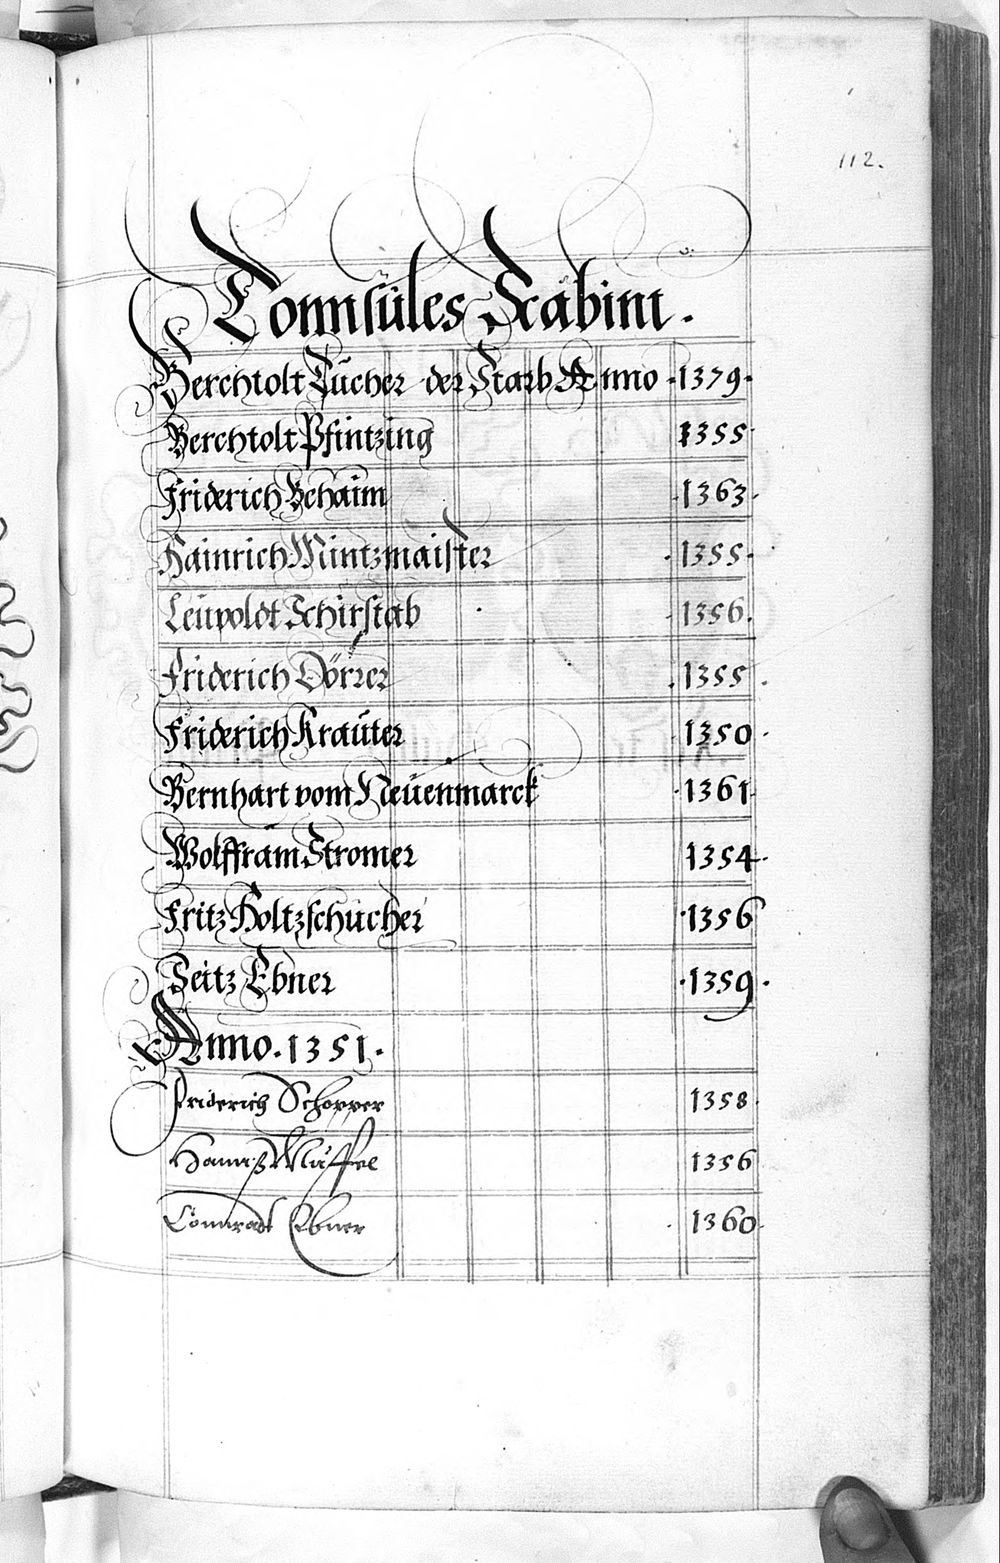 112.
Connsüles Scabini.
Berchtolt Tücher der Starb Anno .1379.
Berchtolt Pfintzing 1355.
Friderich Behaim .1363.
Hainrich Müntzmaister .1355.
Leüpoldt Schirstab .1356.
Friderich Dörrer .1355.
Friderich Kraüter .1350.
Bernhart vom Neüenmarck .1361.
Wolffram Stromer 1354.
Fritz Holtzschücher .1356
Seitz Ebner .1359.
Anno .1351.
Friderich Schopper 1358.
Hannß Müffel 1356
Connradt Ebner .1360.